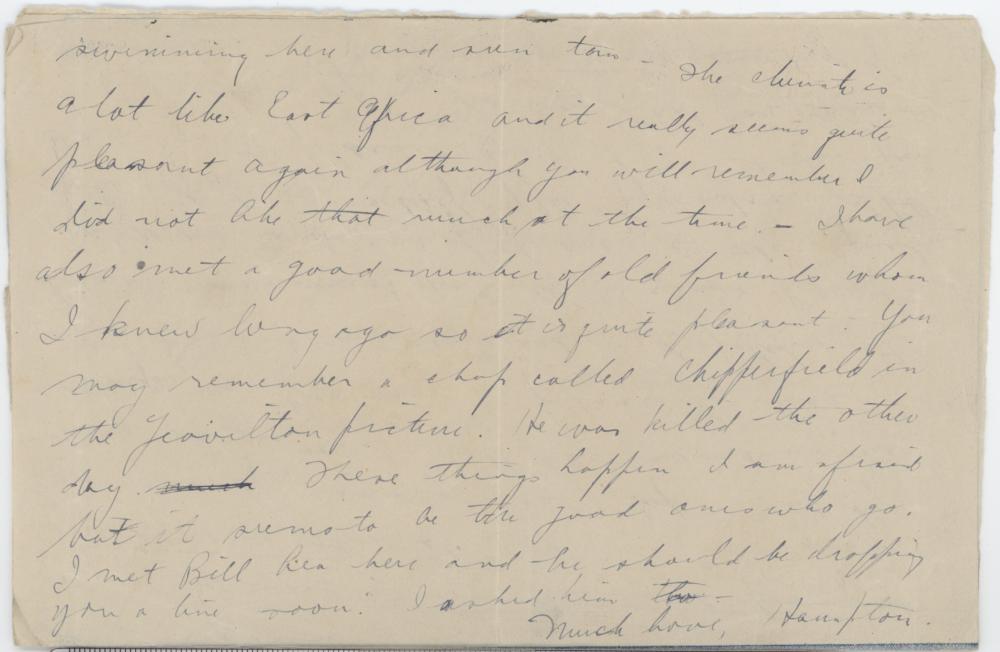 swimming here and sun too - The climate is
a lot like East Africa and it really seems quite
pleasant again although you will remember I
did not like that much at the time. - I have
also met a good number of old friends whom
I knew long ago so it is quite pleasant. You
may remember a chap called Chipperfield in
the Yeovilton picture. He was killed the other
day. much These things happen I am afraid
but it seems to be the good ones who go.
I met Bill here and he should be dropping
you a line soon. I asked him to -
Much love, Hampton.